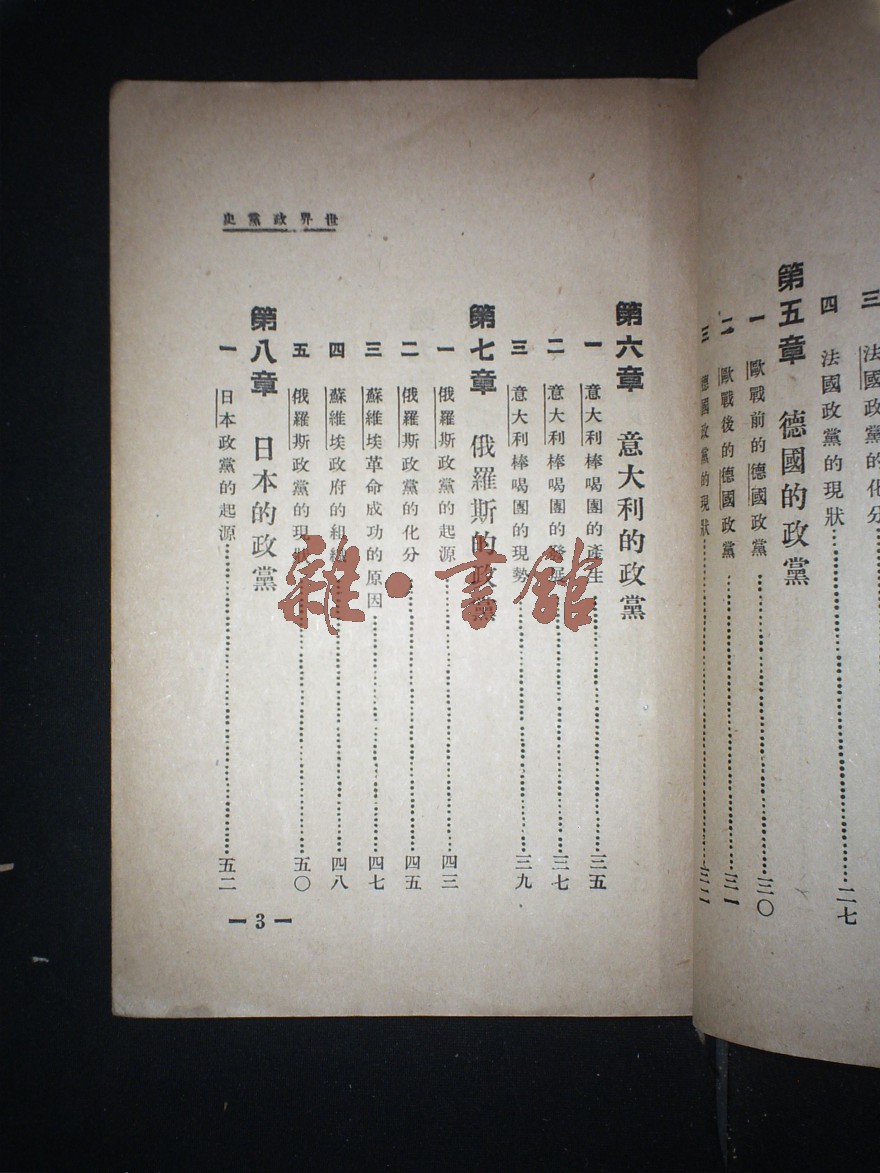 三 法國政黨的化分
四 法國政黨的現狀……二七
第五章 德國的政黨
一 歐戰前的德國政黨……三〇
二 歐戰後的德國政黨……三一
三 德國政黨的現狀……三二
世界政黨史
第六章 意大利的政黨
一 意大利棒喝團的產生……三五
二 意大利棒喝團的發展……三七
三 意大利棒喝團的現勢……三九
第七章 俄羅斯的政黨
一 俄羅斯政黨的起源……四三
二 俄羅斯政黨的化分……四五
三 蘇維埃革命成功的原因……四七
四 蘇維埃政府的組織……四八
五 俄羅斯政黨的現狀……五〇
第八章 日本的政黨
一 日本政黨的起源……五二
— 3 —
雜·書館